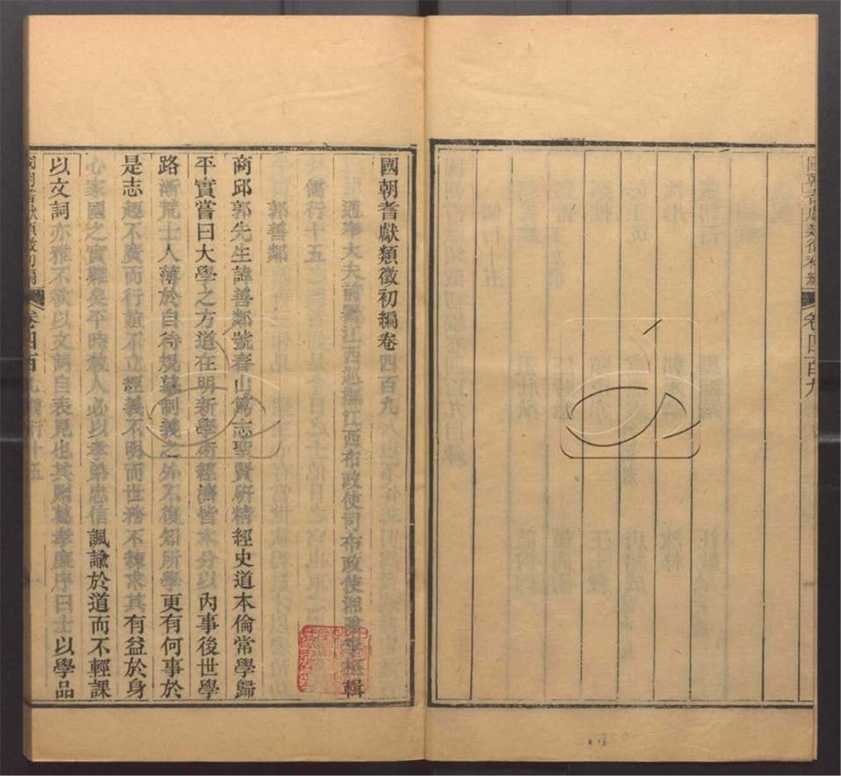 國朝耆獻類徵初編
卷四百九
國朝耆獻類徵初編卷四百九
通奉大夫前署江西巡撫江西布政使司布政使湘陰李桓輯
儒行十五
郭善鄰
商邱郭先生諱善鄰號春山篤志聖賢硏精經史道本倫常學歸
平實嘗曰大學之方道在明新學術經濟皆本分以內事後世學
路漸荒士人薄於自待規摹制義之外不復知所學更有何事於
是志趣不廣而行誼不立經義不明而世務不練求其有益於身
心家國之實難矣平時教人必以孝弟忠信諷諭於道而不輕課
以文詞亦雅不欲以文詞自表見也其贈 孝廉序曰士以學品
國朝耆獻類徵初編
卷四百九 儒行十五